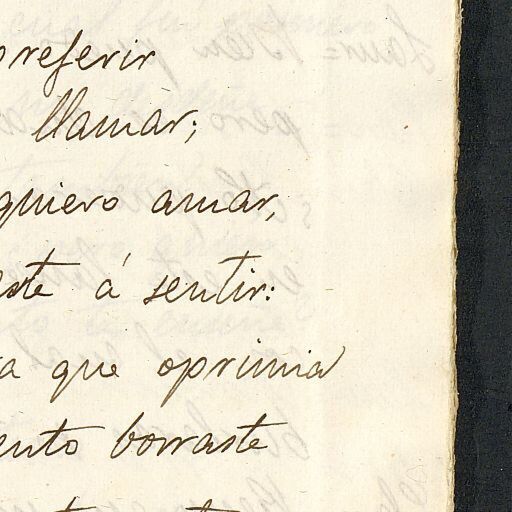 preferir
llamar;
quiero amar,
este á sentir:
a que oprimia
ento borraste